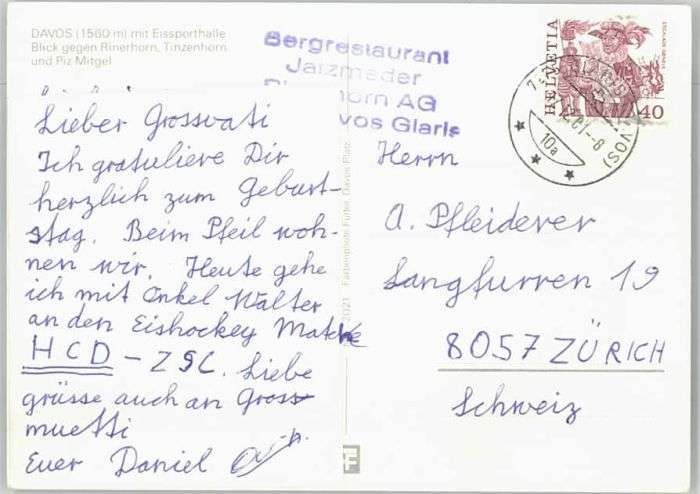 DAVOS (1560 m) mit Eissporthalle
Blick gegen Rinerhorn, Tinzenhorn
und Piz Mitgel
Bergrestaurant
Jatzmeder
horn AG
vos Glaris
HELVETIA
40
10a
Lieber Grossvati
Ich gratuliere Dir
herzlich zum Geburt-
stag. Beim Pfeil woh-
nen wir. Heute gehe
ich mit Onkel Walter
an den Eishockey Match
HCD – ZSC. Liebe
grüsse auch an Gross-
muetti
Euer Daniel
Herrn
A. Pfleiderer
Langfurren 19
8057 ZÜRICH
Schweiz
Davos Platz